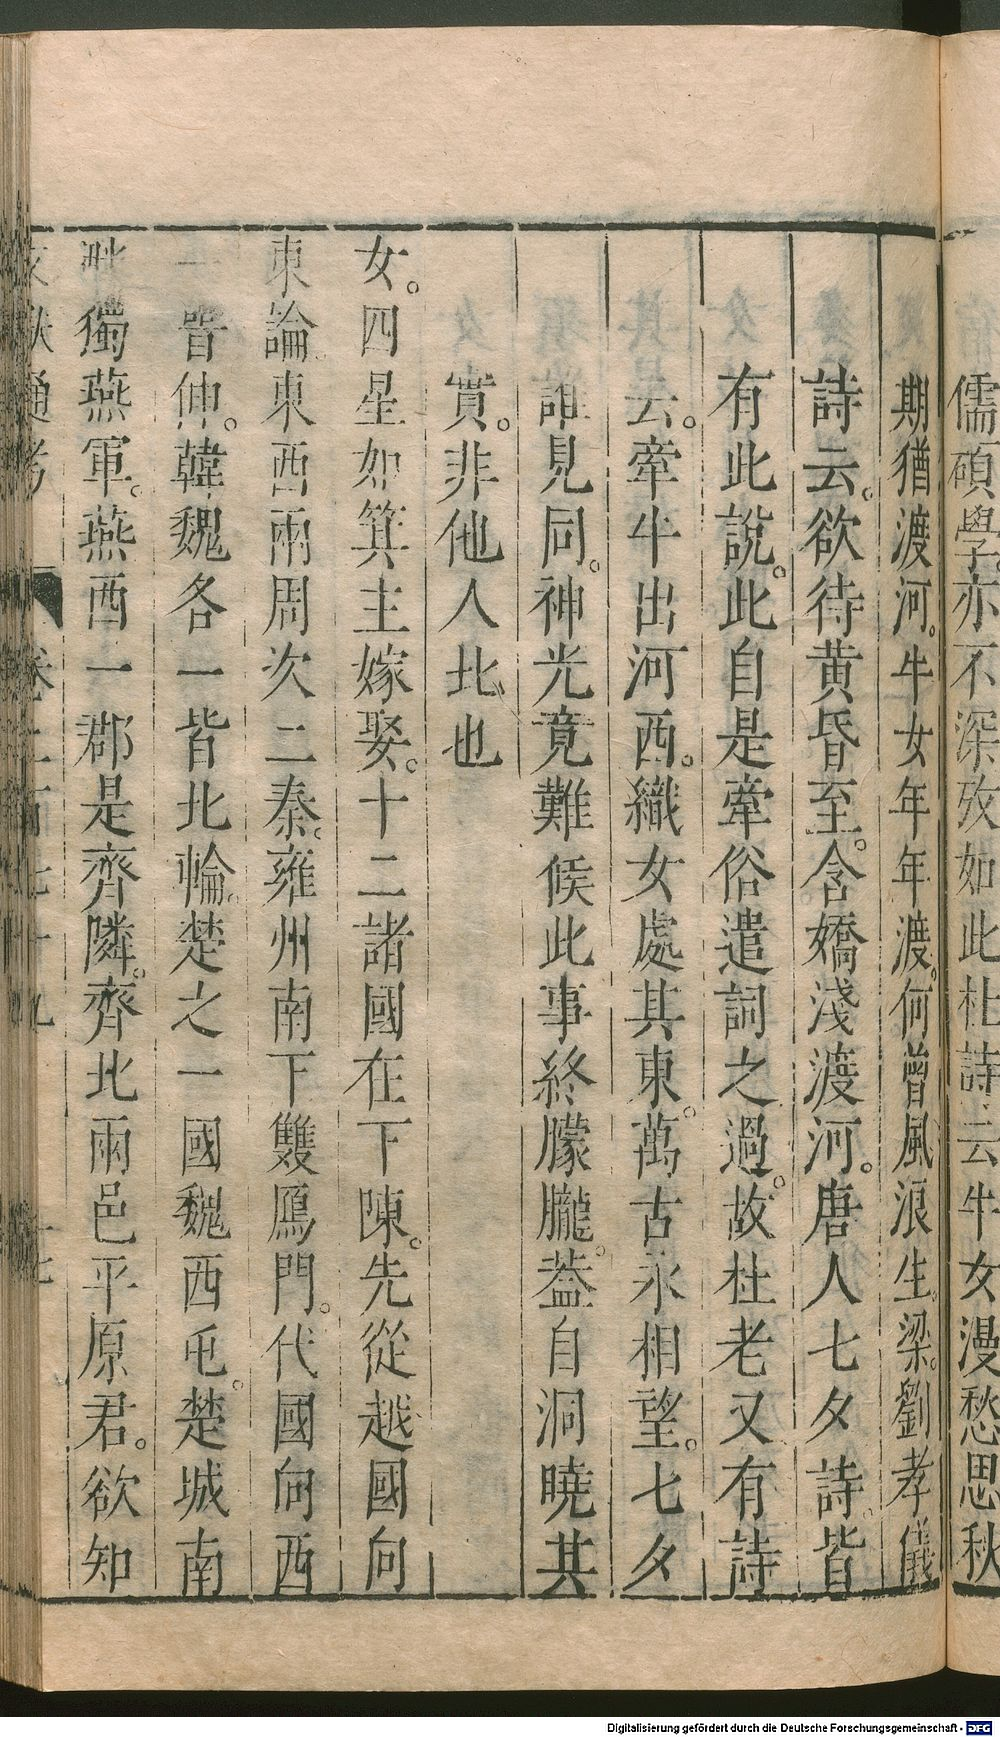 儒碩學。亦不深攷如此杜詩云牛女漫愁思秋
期猶渡河。牛女年年渡。何曾風浪生。梁。劉孝儀
詩云。欲待黄昏至。含嬌淺渡河。唐人七夕詩。皆
有此說。此自是牽俗遣詞之過。故杜老又有詩
云。牽牛出河西。織女處其東。萬古永相望。七夕
誰見同。神光竟難候此事終朦朧。葢自洞曉其
實。非他人比也
女。四星如箕主嫁娶。十二諸國在下陳。先從越國向
東論東西兩周次二秦。雍州南下雙鴈門。代國向西
一晉伸。韓魏各一皆北輪。楚之一國魏西屯。楚城南
畔獨燕軍。燕西一郡是齊隣。齊北兩邑平原君。欲知
文獻通考 卷二百七十九 十七
Digitalisierung gefördert durch die Deutsche Forschungsgemeinschaft - DFG